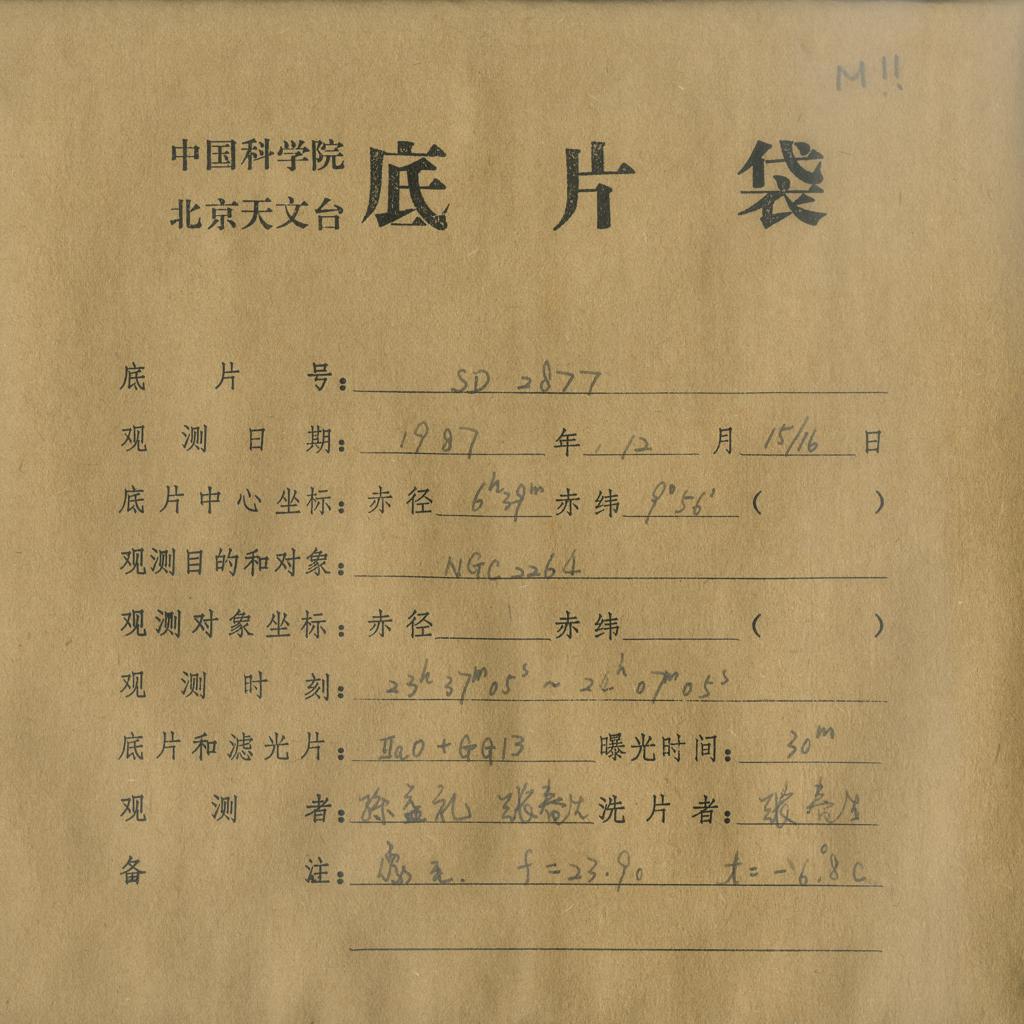 M!!
中国科学院
北京天文台
底片袋
底片号: SD 2877
观测日期: 1987 年 12 月 15/16 日
底片中心坐标: 赤径 6h39m 赤纬 9°56' ( )
观测目的和对象: NGC 2264
观测对象坐标: 赤径 赤纬 ( )
观测时刻: 23h 37m 05s ~ 24h 07m 05s
底片和滤光片: IIaO + GG13 曝光时间: 30m
观测者: 张春生 洗片者: 张春生
备注: f = 23.90 t = -16°.8 C